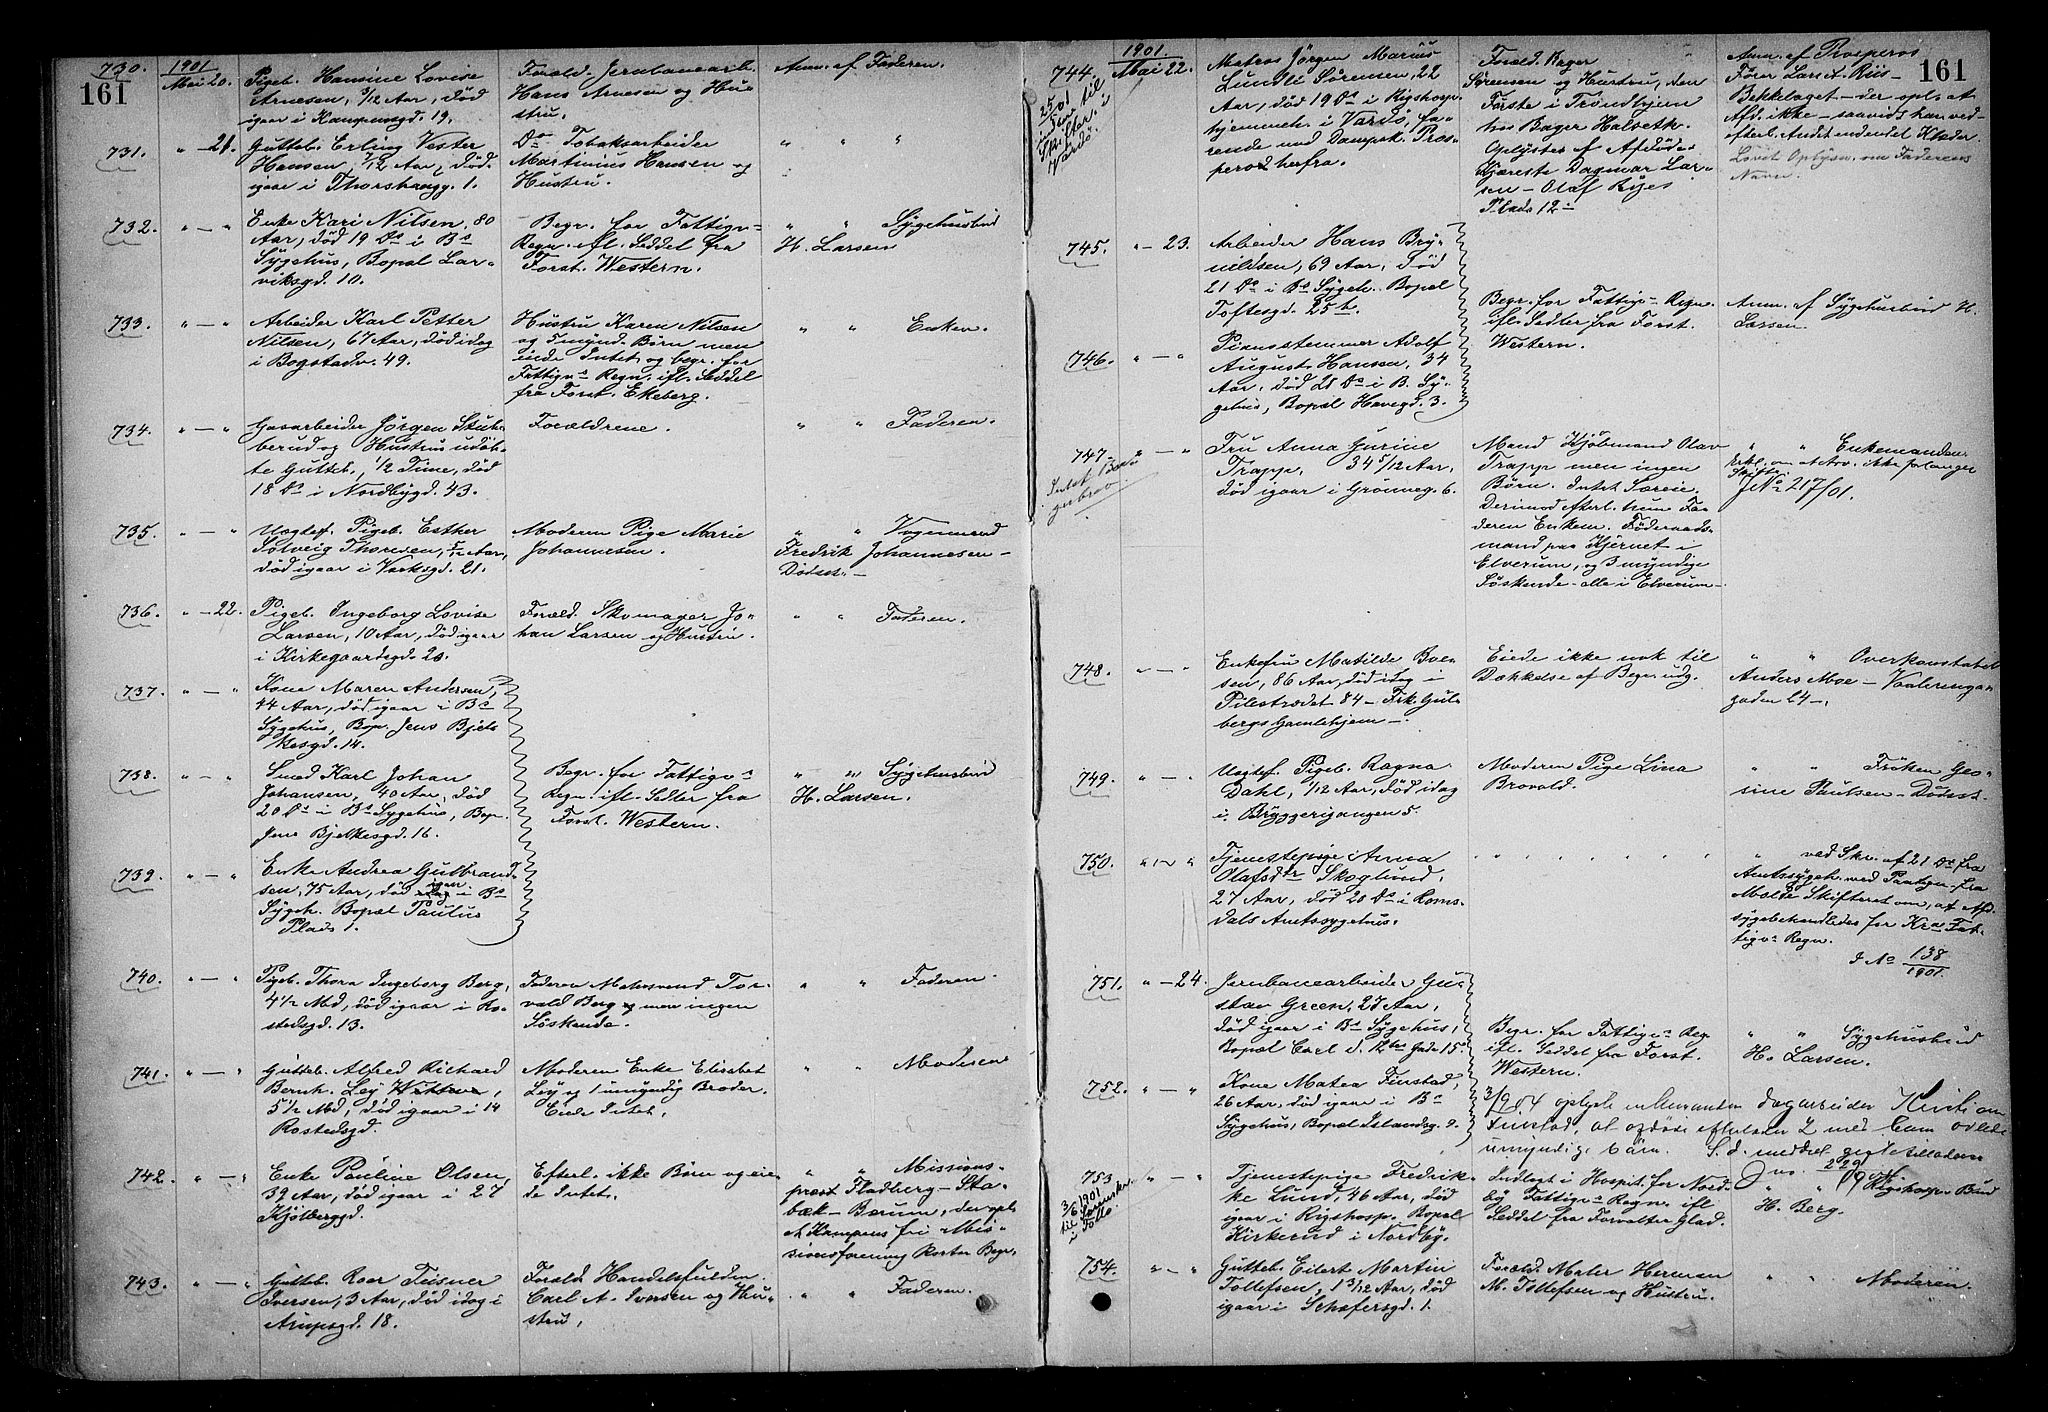 161
730.
1901
Mai 20.
Pigeb. Hansine Lovise
Arnesen, 3/12 Aar, död
igaar i Kampensgd. 19.
Foræld. Jernbanearb.
Hans Arnesen og Hu-
stru.
Anm. af Faderen.
731.
" - 21.
Gutteb. Erling Vester
Hansen, 7/12 Aar, död
igaar i Thorshaugg. 1.
Do Tobaksarbeider
Martinius Hansen og
Hustru.
" " "
732.
" - "
Enke Kari Nilsen, 80
Aar, död 19 Ds i Bs
Sygehus, Bopæl Lar-
viksgd. 10.
Begr. for Fattigv-
Regn. ifl. Seddel fra
Forst. Western.
" " Sygehusbud
H. Larsen
733.
" - "
Arbeider Karl Petter
Nilsen, 67 Aar, död idag
i Bogstadv. 49.
Hustru Karen Nilsen
og 5 mynd. Börn men
eiede Intet og begr. for
Fattigvs Regn. ifl. Seddel
fra Forst. Ekeberg.
" " Enken.
734.
" - "
Gasarbeider Jörgen Stub-
berud og Hustrus udöb-
te Gutteb., 1/2 Time, död
18 Ds i Nordbygd. 43.
Forældrene.
" " Faderen.
735.
" - "
Uægtef. Pigeb. Esther
Solveig Thoresen, 5/12 Aar,
död igaar i Verksgd. 21.
Moderen Pige Marie
Johannesen.
" " Vognmand
Fredrik Johannesen -
Dödsst. -
736.
" - 22.
Pigeb. Ingeborg Lovise
Larsen, 10 Aar, död igaar
i Kirkegaardsgd. 20.
Foræld. Skomager Jo-
han Larsen og Hustru.
" " Faderen.
737.
" - "
Kone Maren Andersen,
44 Aar, död igaar i Bs
Sygehus, Bop. Jens Bjel-
kesgd. 14.
738.
" - "
Smed Karl Johan
Johansen, 40 Aar, död
20 Ds i Bs Sygehus, Bop.
Jens Bjelkesgd. 16.
Begr. for Fattigvs
Regn. ifl. Sedler fra
Forst. Western.
" " Sygehusbud
H. Larsen.
739.
" - "
Enke Andrea Gulbrand-
sen, 75 Aar, död igaar i Bs
Sygeh. Bopæl Paulus
Plads 1.
740.
" - "
Pigeb. Thora Ingeborg Berg,
4 1/2 Md, död igaar i Ro-
stedsgd. 13.
Faderen Malersvend Tor-
vald Berg men ingen
Söskende.
" " Faderen.
741.
" - "
Gutteb. Alfred Richard
Bernh. Ley,
5 1/2 Md, död igaar i 14
Rostedsgd.
Moderen Enke Elisabet
Ley og 1 umyndig Broder.
Eiede Intet.
" " Moderen
742.
" - "
Enke Pauline Olsen,
39 Aar, död igaar i 27
Kjölberggd.
Efterl. ikke Börn og eie-
de Intet.
" " Missions-
præst Fladberg - Sta-
bæk - Bærum, der opl.
at Kampens fri Mis-
sionsforening Koster Begr.
743.
" - "
Gutteb. Roar Feisner
Iversen, 3 Aar, död idag i
Arupsgd. 18.
Foræld. Handelsfuldm.
Carl A. Iversen og Hu-
stru.
" " Faderen.
161
744.
1901.
Mai 22.
Vardö.
Matros Jörgen Marius
Lundli Sörensen, 22
Aar, död 19 Ds i Rigshosp.
hjemmeh. i Vardö, fa-
rende med Dampsk. Pros-
pero herfra.
Foræld. Bager
Sörensen og Hustru, den
Förste i Trondhjem
hos Bager Halseth.
Oplystes af Afdödes
Kjæreste Dagmar Lar-
sen - Olaf Ryes
Plads 12
Anm. af Prosperos
Förer Lars A. Riis -
Bekkelaget - der opl. at
Afd. ikke - saavidt han ved -
efterl. Andet end endel Klæder.
Lovet Oplysn. om Faderens
Navn.
745.
" - 23.
Arbeider Hans Bry-
nildsen, 69 Aar, död
21 Ds i Bs Sygeh. Bopæl
Toftesgd. 25 b.
Begr. for Fattigvs Regn.
ifl. Sedler fra Forst.
Western.
Anm. af Sygehusbud H.
Larsen.
746.
" - "
Pianostemmer Adolf
August Hansen, 34
Aar, död 21 Ds i B. Sy-
gehus, Bopæl Havegd. 3.
747.
" - "
Fru Anna Gurine
Trapp, 34 5/12 Aar,
död igaar i Grönneg. 6.
Mand Kjöbmand Olav
Trapp men ingen
Börn. Intet Særeie.
Derimod efterl. hun Fa-
deren Enkem. Föderaads-
mand paa Kjernet i
Elverum, og 3 myndige
Söskende - alle i Elverum -
" " Enkemanden.
Erkl. om at Arv. ikke forlanger
Skifte.
J No 217/01.
748.
" - "
Enkefru Matilde Boe-
sen, 86 Aar, död idag i
Pilestrædet 84 - Frk. Gul-
bergs Gamlehjem -.
Eiede ikke nok til
Dækkelse af Begr. udg.
" " Overkonstabel
Anders Moe - Vaalerenga-
gaden 24 -.
749.
" - "
Uægtef. Pigeb. Ragna
Dahl, 1/12 Aar, död idag
i Bryggerigangen 5.
Moderen Pige Lina
Brovald.
" " Fröken Ge-
sine Paulsen - Dödsst.
750.
" - "
Tjenestepige Anna
Olafsdtr Skoglund,
27 Aar, död 20 Ds i Roms-
dals Amtssygehus.
" " " " " "
" ved Skr. af 21 Ds fra
Amtssygeh. med Paategn. fra
Molde Skifteret om, at Afd.
sygebehandledes for Kra Fat-
tigvs Regn.
J No 138/1901.
751.
" - 24.
Jernbanearbeider Gu-
stav Green, 27 Aar,
död igaar i Bs Sygehus,
Bopæl Carl d. 12tes Gade 15.
Begr. for Fattigvs Reg.
ifl. Seddel fra Forst.
Western.
" " Sygehusbud
H. Larsen.
752.
" - "
Kone Matea Finstad,
26 Aar, död igaar i Bs
Sygehus, Bopæl Islandsg. 9.
3/9 04 oplyste enkemanden dagarbeider Kristian
Finstad, at afdöde efterlader 2 med ham avlede
umyndige börn. S. d. meddelt giftetilladelse
J no. 229/04
753
" - "
3/6 1901
Tjenestepige Fredrik-
ke Lund, 46 Aar, död
igaar i Rigshosp. Bopæl
Kirkerud i Nordby.
Indlagt i Hospit. for Nord-
by Fattigvs Regn. ifl
Seddel fra Forvalter Glad.
" " Rigshosp. Bud
H. Berg.
754.
" - "
Gutteb. Eilert Martin
Tollefsen, 1 3/12 Aar, död
igaar i Schæfersgd. 1.
Foræld. Maler Herman
M. Tollefsen og Hustru.
" " Moderen.